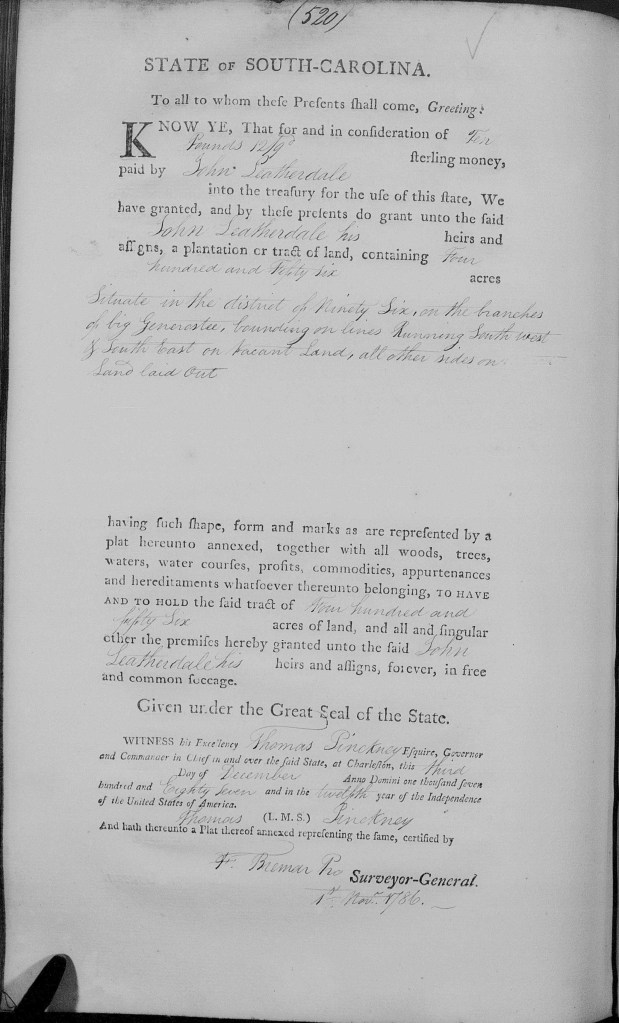 (520)
STATE OF SOUTH-CAROLINA.
To all to whom these Presents shall come, Greeting:
KNOW YE, That for and in consideration of Ten
Pounds 12/9d sterling money,
paid by John Leatherdale
into the treasury for the use of this state, We
have granted, and by these presents do grant unto the said
John Leatherdale his heirs and
assigns, a plantation or tract of land, containing Four
hundred and Fifty Six acres
Situate in the district of Ninety Six, on the branches
of big Generostee, bounding on lines Running South West
& South East on Vacant Land, all other sides on
Land laid Out
having such shape, form and marks as are represented by a
plat hereunto annexed, together with all woods, trees,
waters, water courses, profits, commodities, appurtenances
and hereditaments whatsoever thereunto belonging, TO HAVE
AND TO HOLD the said tract of Four hundred and
fifty Six acres of land, and all and singular
other the premises hereby granted unto the said John
Leatherdale his heirs and assigns, forever, in free
and common soccage.
Given under the Great Seal of the State.
WITNESS his Excellency Thomas Pinckney Esquire, Governor
and Commander in Chief in and over the said State, at Charleston, this third
Day of December Anno Domini one thousand seven
hundred and Eighty seven and in the twelfth year of the Independence
of the United States of America.
Thomas (L. M. S.) Pinckney
And hath thereunto a Plat thereof annexed representing the same, certified by
F. Bremar Pro Surveyor-General.
1st Novr. 1786.